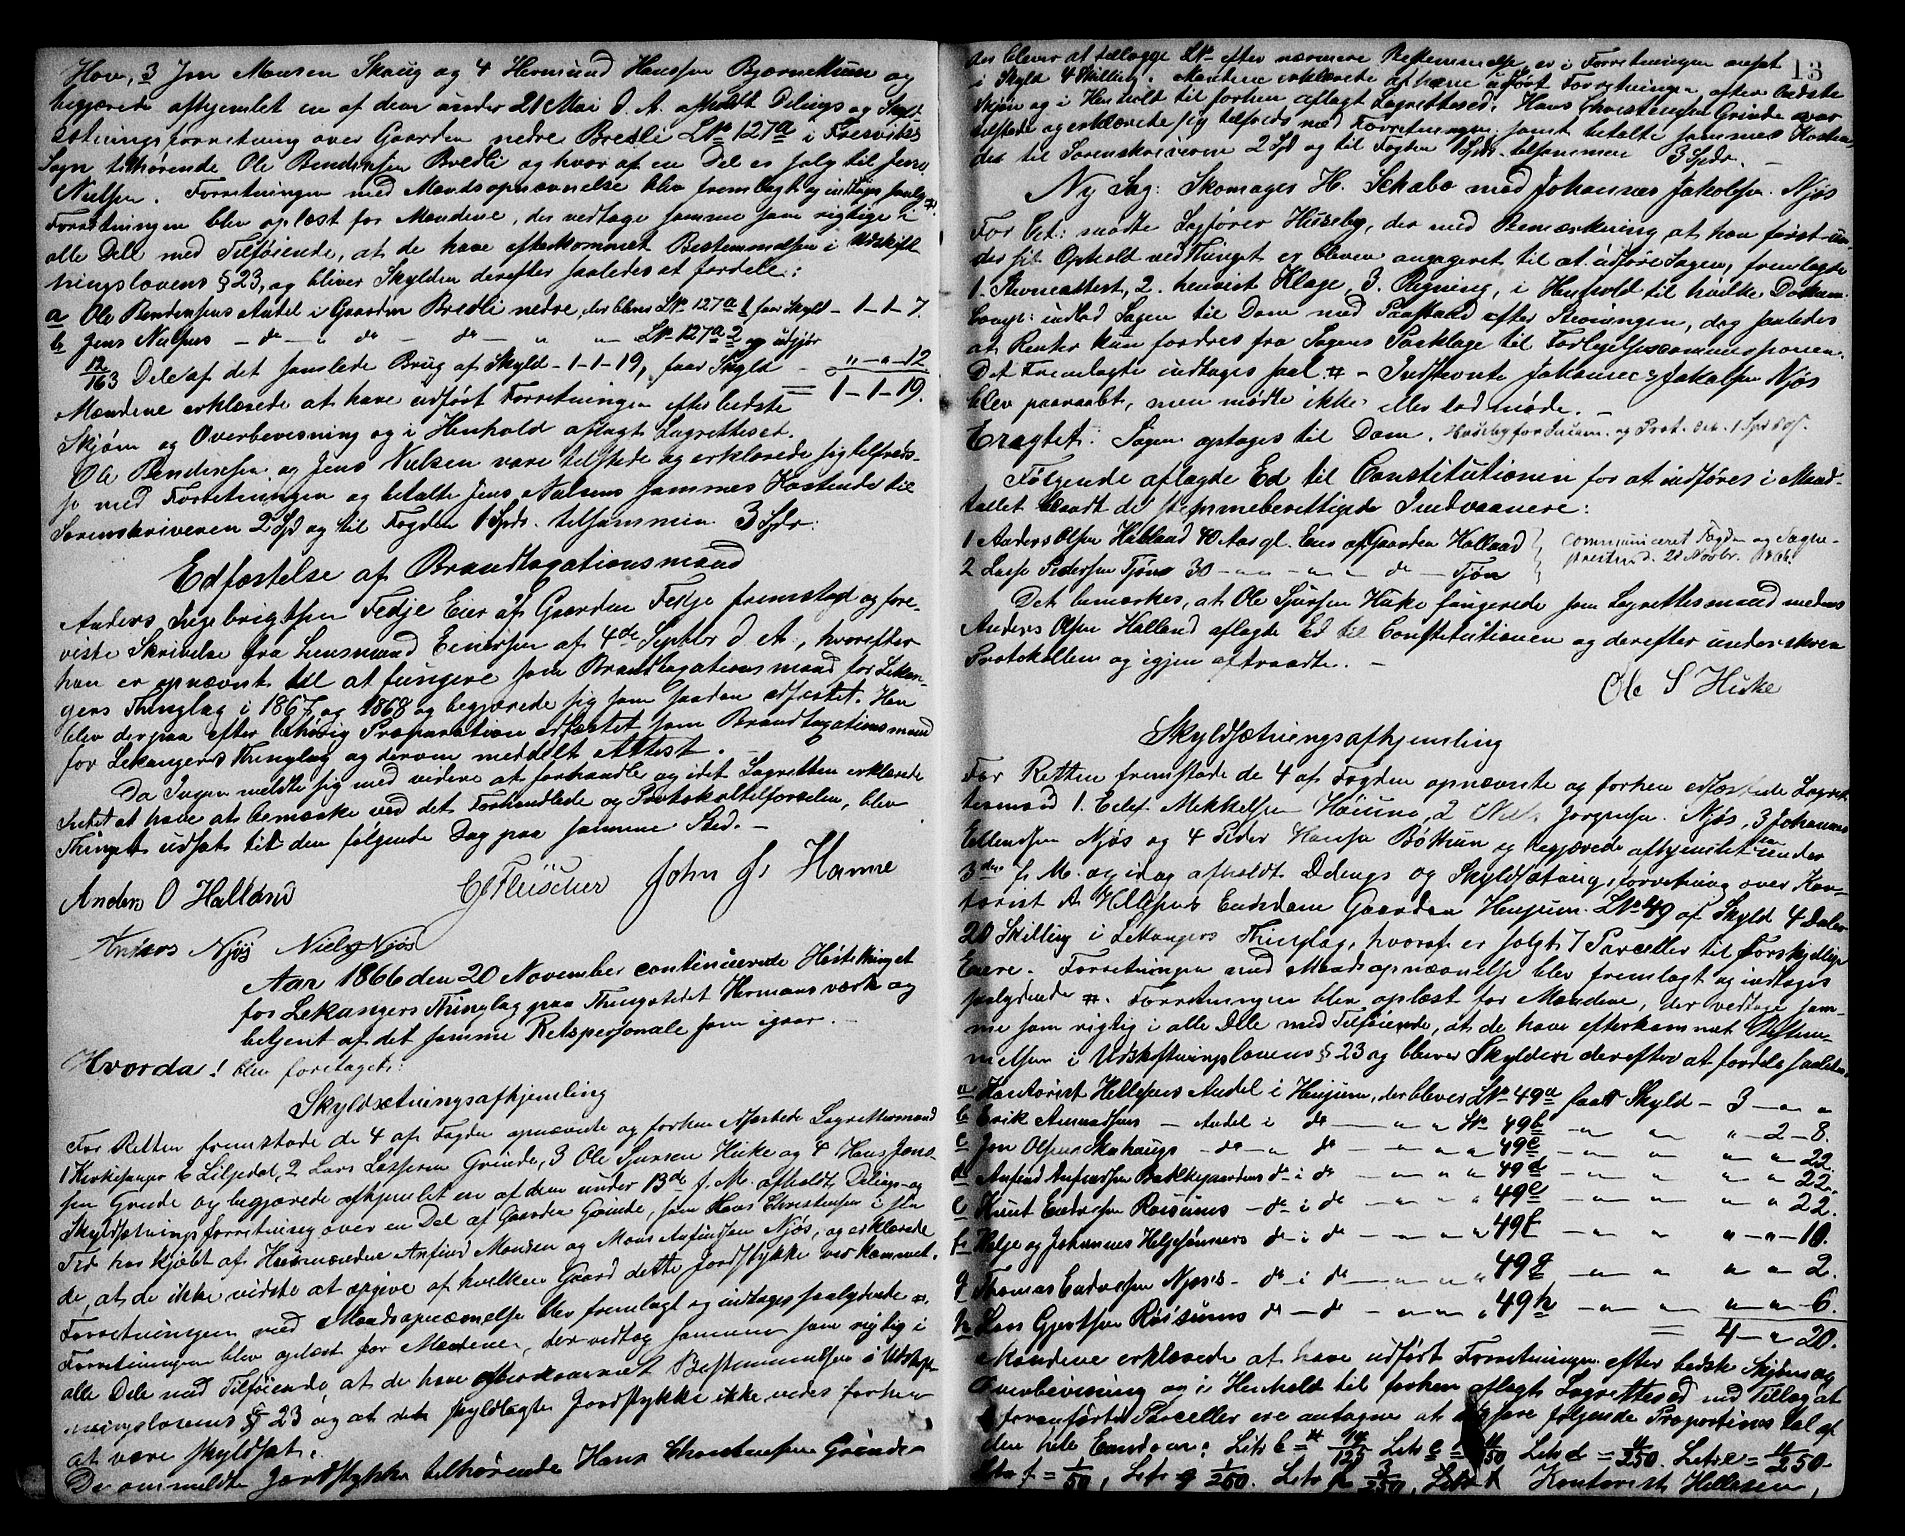 Hov, 3 Jon Monsen Skaug og 4 Hermund Hanssen Bjørnetun og
begjærede afhjemlet en af dem under 21 Mai d. A. afholdt Delings og Skyld-
sætningsforretning over Gaarden nedre Bredli LNo 127a i Fresviks
Sogn tilhørende Ole Bendiksen Bredli og hvoraf en Del er solgt til Jens
Nielsen. Forretningen med Mandsopnævnelse blev fremlagt og indtages saalyd. #.
Forretningen blev oplæst for Mændene, der vedtoge samme som rigtige i
alle Dele med Tilføiende, at de have efterkommet Bestemmelsen i Udskift-
ningslovens § 23, og bliver Skylden derefter saaledes at fordele:
a Ole Bendiksens Andel i Gaarden Bredli nedre, der blever LNo 127a 1 for Skyld - 1 - 1 - 7.
b Jens Nielsens - do - " do - do - " " LNo 127a 2 og udgjør
12/163 Dele af det samlede Brug af Skyld - 1-1-19, faar Skyld - " - " - 12
1 - 1 - 19.
Mændene erklærede at have udført Forretningen efter bedste
Skjøn og Overbevisning og i Henhold aflagt Lagrettesed.
Ole Bendiksen og Jens Nielsen vare tilstede og erklærede sig tilfreds-
se med Forretningen og betalte Jens Nielsens sammes Kostende til
Sorenskriveren 2 Spd og til Fogden 1 Spd. tilsammen 3 Spdr:
Edfæstelse af Brandtaxationsmand
Anders Ingebrigtsen Fedje Eier af Gaarden Fedje fremstod og fore-
viste Skrivelse fra Lensmand Einersen af 4de Septbr d. A., hvorefter
han er opnævnt til at fungere som Brandtaxationsmand for Lekan-
gers Thinglag i 1867 og 1868 og begjærede sig som saadan edfæstet. Han
blev derpaa efter behørig Præparation edfæstet som Brandtaxationsmand
for Lekangers Thinglag og derom meddelt Attest.
Da Ingen meldte sig med videre at forhandle og idet Lagretten erklærede
Intet at have at bemærke ved det Forhandlede og Protokoltilførselen, blev
Thinget udsat til den følgende Dag paa samme Sted. -
CFleischer John J. Hamre
Anders O Halland
Andreas Njøs Niels Njøs
Aar 1866 den 20 November continuerede Høstethinget
for Lekangers Thinglag paa Thingstedet Hermansværk og
betjent af det samme Retspersonale som igaar. -
Hvorda! blev foretaget:
Skyldsætningsafhjemling
For Retten fremstode de 4 af Fogden opnævnte og forhen edfæstede Lagrettesmænd
1 Kirkesanger E Liljedal, 2 Lars Lassesen Grinde, 3 Ole Sjursen Huske og 4 Hans Jens-
sen Grinde og begjærede afhjemlet en af dem under 13de f. M. afholdt Delings- og
Skyldsætningsforretning over en Del af Gaarden Grinde, som Hans Christensen i sin
Tid har kjøbt af Huusmændene Anfind Monsen og Mons Anfindsen Njøs, og erklærede
de, at de ikke vidste at opgive af hvilken Gaard dette Jordstykke var kommet.
Forretningen med Mandsopnævnelse blev fremlagt og indtages saalydende #.
Forretningen blev oplæst for Mændene, der vedtog samme som rigtig i
alle Dele med Tilføiende, at de have efterkommet Bestemmelsen i Udskift-
ningslovens § 23 og at det skyldlagte Jordstykke ikke vides forhen
at være skyldsat.
De ommeldte Jordstykke tilhørende Hans Christensen Grinde
13
der bliver at tillægge LNo efter nærmere Bestemmelse, er i Forretningen ansat
i Skyld 4 Skilling. Mændene erklærede at have udført Forretningen efter bedste
Skjøn og i Henhold til forhen aflagt Lagrettesed. Hans Christensen Grinde var
tilstede og erklærede sig tilfreds med Forretningen samt betalte sammes Kosten-
de til Sorenskriveren 2 Spd og til Fogden 1 Spd. tilsammen 3 Spdr. -
Ny Sag: Skomager H. Schabo mod Johannes Jakobsen Njøs
For Cit: mødte Sagfører Huseby, der med Bemærkning, at han først un-
der sit Ophold ved Thinget er bleven engageret til at udføre Sagen, fremlagde
1. Stevneattest, 2. henvist Klage, 3. Regning, i Henhold til hvilke Docum:
Comp: indlod Sagen til Dom med Paastand efter Stevningen, dog saaledes
at Renter kun fordres fra Sagens Paaklage til Forligelsescommissionen.
Det Fremlagte indtages saal. # - Indstevnte Johannes Jakobsen Njøs
blev paaraabt, men mødte ikke eller lod møde. -
Eragtet: Sagen optages til Dom.
Følgende aflagde Ed til Constitutionen for at indføres i Mand-
tallet blandt de stemmeberettigede Indvaanere:
1 Anders Olsen Halland 40 Aar gl. Eier af Gaarden Halland } communiceret Fogden og Sogne-
2 Lasse Pedersen Tjøn 30 - " " - " " - do - Tjøn } presten d. 21 Novbr. 1866.
Det bemærkes, at Ole Sjursen Huke fungerede som Lagrettesmand medens
Anders Olsen Halland aflagde Ed til Constitutionen og derefter underskrev
Protokollen og igjen aftraadte. -
Ole S Huke
Skyldsætningsafhjemling
For Retten fremstode de 4 af Fogden opnævnte og forhen edfæstede Lagret-
tesmænd 1. Eilef Mikkelsen Høium, 2 Niels Jørgensen Njøs, 3 Johannes
Ellendsen Njøs og 4 Peder Hansen Bøttun og begjærede afhjemlet en under
3die f. M. og idag afholdt Delings og Skyldsætningsforretning over Kon-
torist A Hillesens Eiendom Gaarden Henjum LNo 49 af Skyld 4 Daler
20 Skilling i Lekangers Thinglag, hvoraf er solgt 7 Parceller til forskjellige
Eiere. Forretningen med Mandsopnævnelse blev fremlagt og indtages
saalydende #. Forretningen blev oplæst for Mændene, der vedtoge sam-
me som rigtig i alle Dele med Tilføiende, at de have efterkommet Bestem-
melsen i Udskiftningslovens § 23 og bliver Skylden derefter at fordele saaledes:
a Kontorist Hillesens Andel i Henjum, der blever LNo 49a faar Skyld - 3 - " "
b Erik Amundsens - Andel i do - " " LNo 49b - " " " - 2 - 8.
c Jon Olsen Skahaugs - do - " do - " " " 49c - " " " " - 22.
d Anfind Anfindsen Bakkegaardens do - i do - " " " 49d - " " " " - 22.
e Knut Endresen Røisums - do i do - " " " 49e - " " " " - 22.
f Helje og Johannes Helgesønners do i do - " " " 49f - " " " " - 10.
g Thomas Endresen Njøs's - do i do - " " " 49g - " " " " - 2.
h Lars Gjertsen Røisums do - do - " " " 49h - " " " " - 6.
4 - " 20.
Mændene erklærede at have udført Forretningen efter bedste Skjøn og
Overbevisning og i Henhold til forhen aflagt Lagrettesed med Tillæg at
foranførte Parceller ere antagne at udgjøre følgende Proportions Tal af
den hele Eiendom: Litr b = Litr c = 11/250 Litr d = 11/250. Litr e = 11/250.
Litr f = 1/50, Litr g 1/250. Litr h 3/250, Kontorist Hillesen,